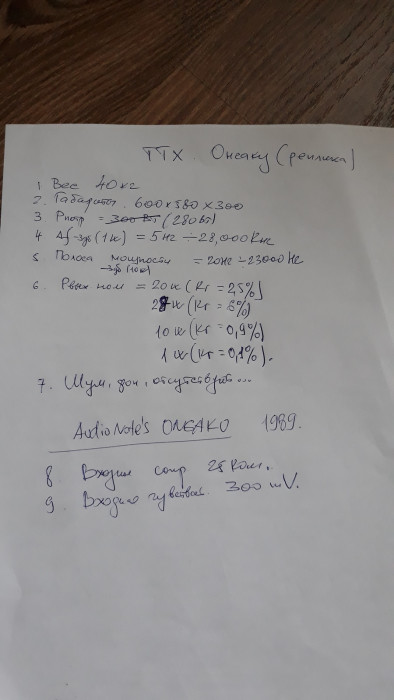 ТТХ Онсаку (реплика)
1 Вес 40 кг
2. Габариты. 600 x 580 x 300
3 Pпотр = 300 Вт (280 Вт)
4 Δf -3дб (1w) = 5Hz ÷ 28,000 KHz
5. Полоса мощности = 20Hz - 23000 Hz
-3дб (10w)
6. Pвых ном = 20w (Kг = 2,5%)
(Kг = 5%)
10 w (Kг = 0,9%)
1 w (Kг = 0,1%).
7. Шум, фон, отсутствует...
Audio Note's ONGAKO 1989.
8. Входн сопр 25 Ком.
9. Входно чувствит. 300 mV.